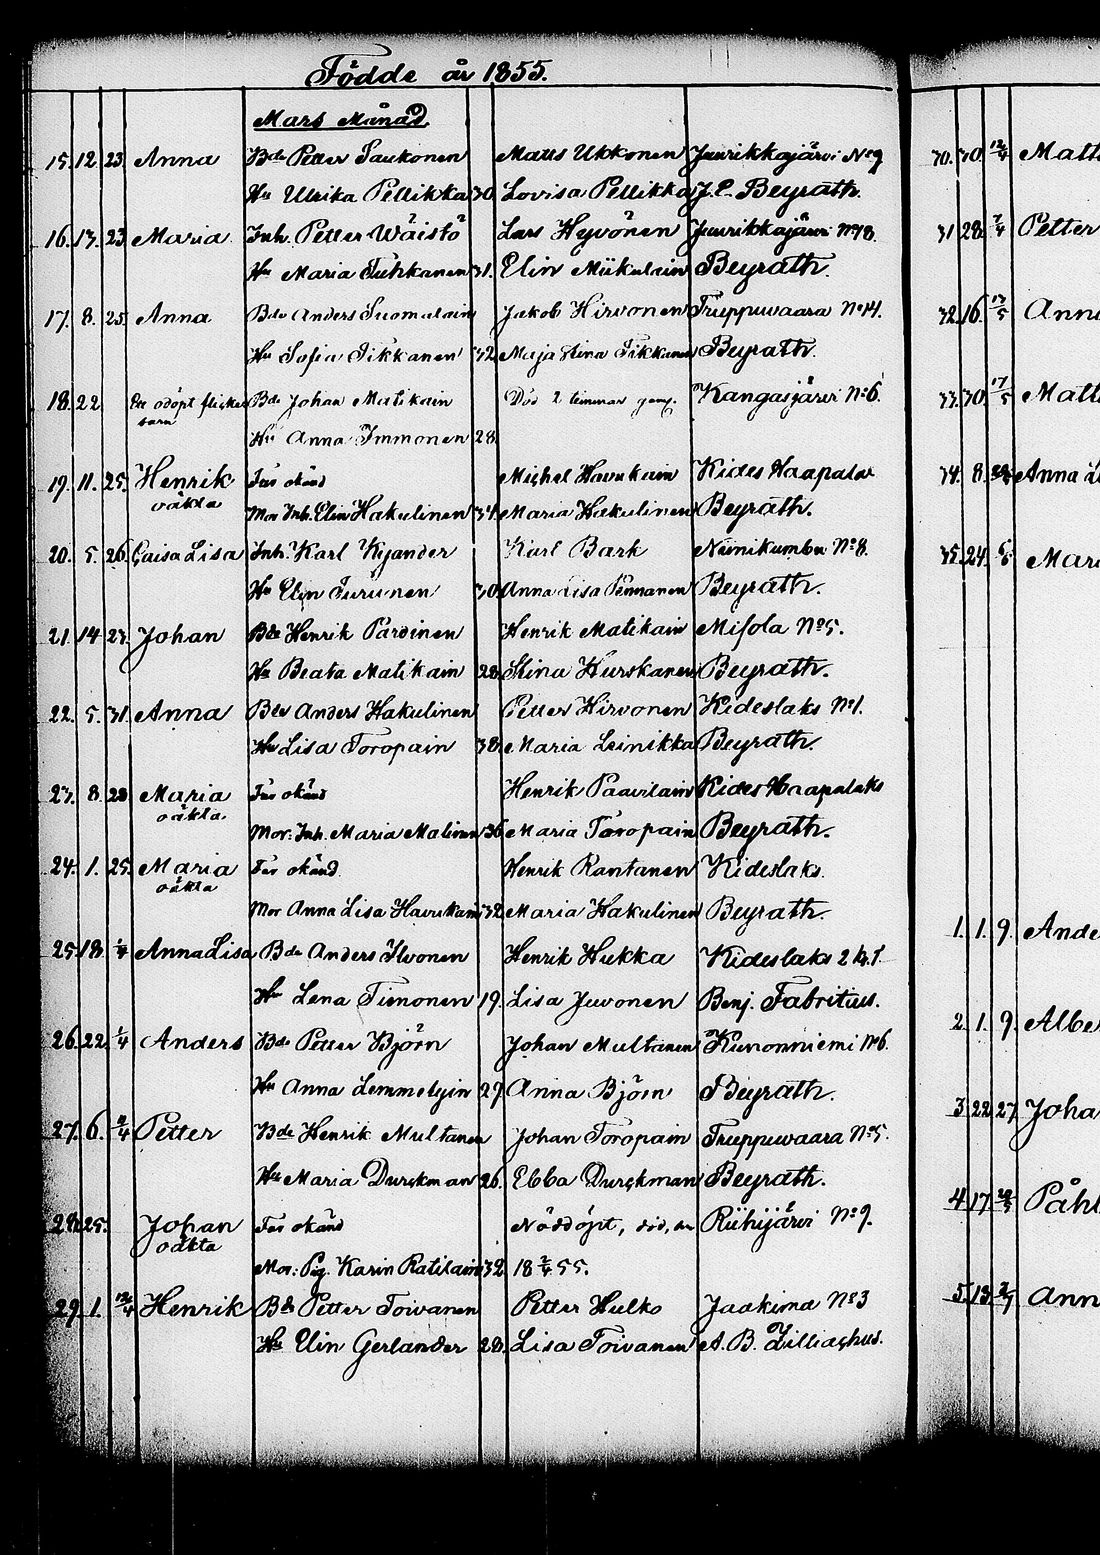 Födde år 1855.
Mars Månad
15. 12. 23 Anna Bde Petter Saukonen Matts Ukkonen Juurikkajärvi No 9
Hu Ulrika Pellikka 30. Lovisa Pellikka J. C. Beyrath.
16. 13. 23 Maria Inh. Petter Wäistö Lars Hyvönen Juurikkajärvi No 18.
Hu Maria Tuhkanen 31. Elin Miikulain Beyrath.
17. 8. 25. Anna Bde Anders Suomalain Jakob Hirvonen Truppuwaara No 14.
Hu Sofia Tikkanen 32 Maja Stina Tikkanen Beyrath.
18. 22. Ett odöpt flicke Bde Johan Matikain Död 2 timmar gam. Kangasjärvi No 6.
barn
Hu Anna Immonen 28.
19. 11. 25. Henrik Far okänd Michel Havukain Kides Haapala
oäkta Mor Inh. Elin Hakulinen 34. Maria Hakulinen Beyrath.
20. 5. 26. Caisa Lisa Inh. Karl Kyander Karl Bark Niinikumbu No 8.
Hu Elin Turunen 30 Anna Lisa Pennanen Beyrath.
21. 14 27. Johan Bde Henrik Pardinen Henrik Matikain Misola No 5.
Hu Beata Matikain 28. Stina Hurskanen Beyrath.
22. 5. 31. Anna Bde Anders Hakulinen Petter Hirvonen Kideslaks No 1.
Hu Lisa Toropain 38. Maria Leinikka Beyrath.
23. 8. 28 Maria Far okänd Henrik Paavilain Kides Haapalaks
oäkta. Mor: Inh. Maria Malinen 36 Maria Toropain Beyrath.
24. 1. 25. Maria Far okänd. Henrik Rantanen Kideslaks.
oäkta Mor Anna Lisa Havukain 32 Maria Hakulinen Beyrath.
25. 18. 1/4 Anna Lisa Bde Anders Ilvonen Henrik Hukka Kideslaks 2
Hu Lena Timonen 19. Lisa Juvonen Benj. Fabritius.
26. 22. 1/4 Anders Bde Petter Björn Johan Multanen Kunonniemi No 6.
Hu Anna Lemmetyin 27 Anna Björn Beyrath.
27. 6. 2/4 Petter Bde Henrik Multanen Johan Toropain Truppuwaara No 5.
Hu Maria Durckman 26. Ebba Durckman Beyrath.
28. 25. Johan Far okänd Nöddöpt, död, Riihijärvi No 9.
oäkta
Mor: Pig. Karin Ratilain 32 18 2/4 55.
29. 1. Henrik Bde Petter Toivanen Petter Hulko Jaakima No 3
Hu Elin Gerlander 28. Lisa Toivanen A. B. Zilliachus.
30. 30. Matt
31 28. 7/4 Petter
32. 16. 13/5 Ann
33. 30. 17/5 Matt
34. 8. Anna L
35. 24. Mar
1. 1. 9. Ande
2. 1. 9. Albe
3. 22 27. Joha
4. 17. Påhl
5. 13. Ann